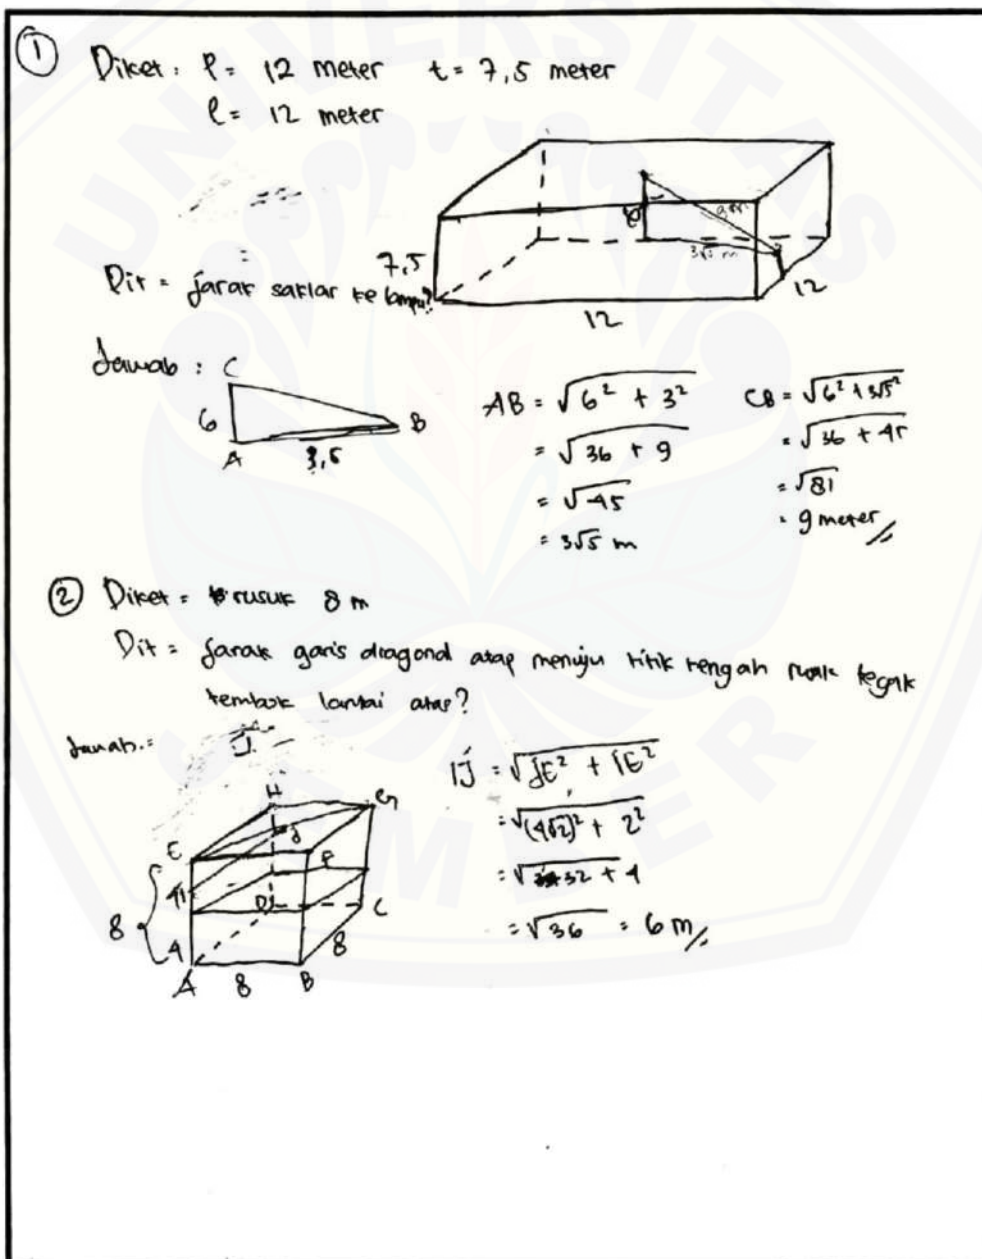 ①
Diket : P = 12 meter t = 7,5 meter
l = 12 meter
7,5
12
12
3√5 m
Dit = jarak saklar ke lampu?
Jawab :
C
6
A
B
3,5
AB = √6² + 3²
= √36 + 9
= √45
= 3√5 m
CB = √6² + 3√5²
= √36 + 45
= √81
= 9 meter //
②
Diket = rusuk 8 m
Dit = Jarak garis diagonal atap menuju titik tengah rusuk tegak
tembok lantai atas?
Jawab :
H
G
E
J
F
4
I
D
C
8
4
8
A
8
B
IJ = √JE² + IE²
= √(4√2)² + 2²
= √32 + 4
= √36 = 6 m //
UNIVERSITAS
JEMBER